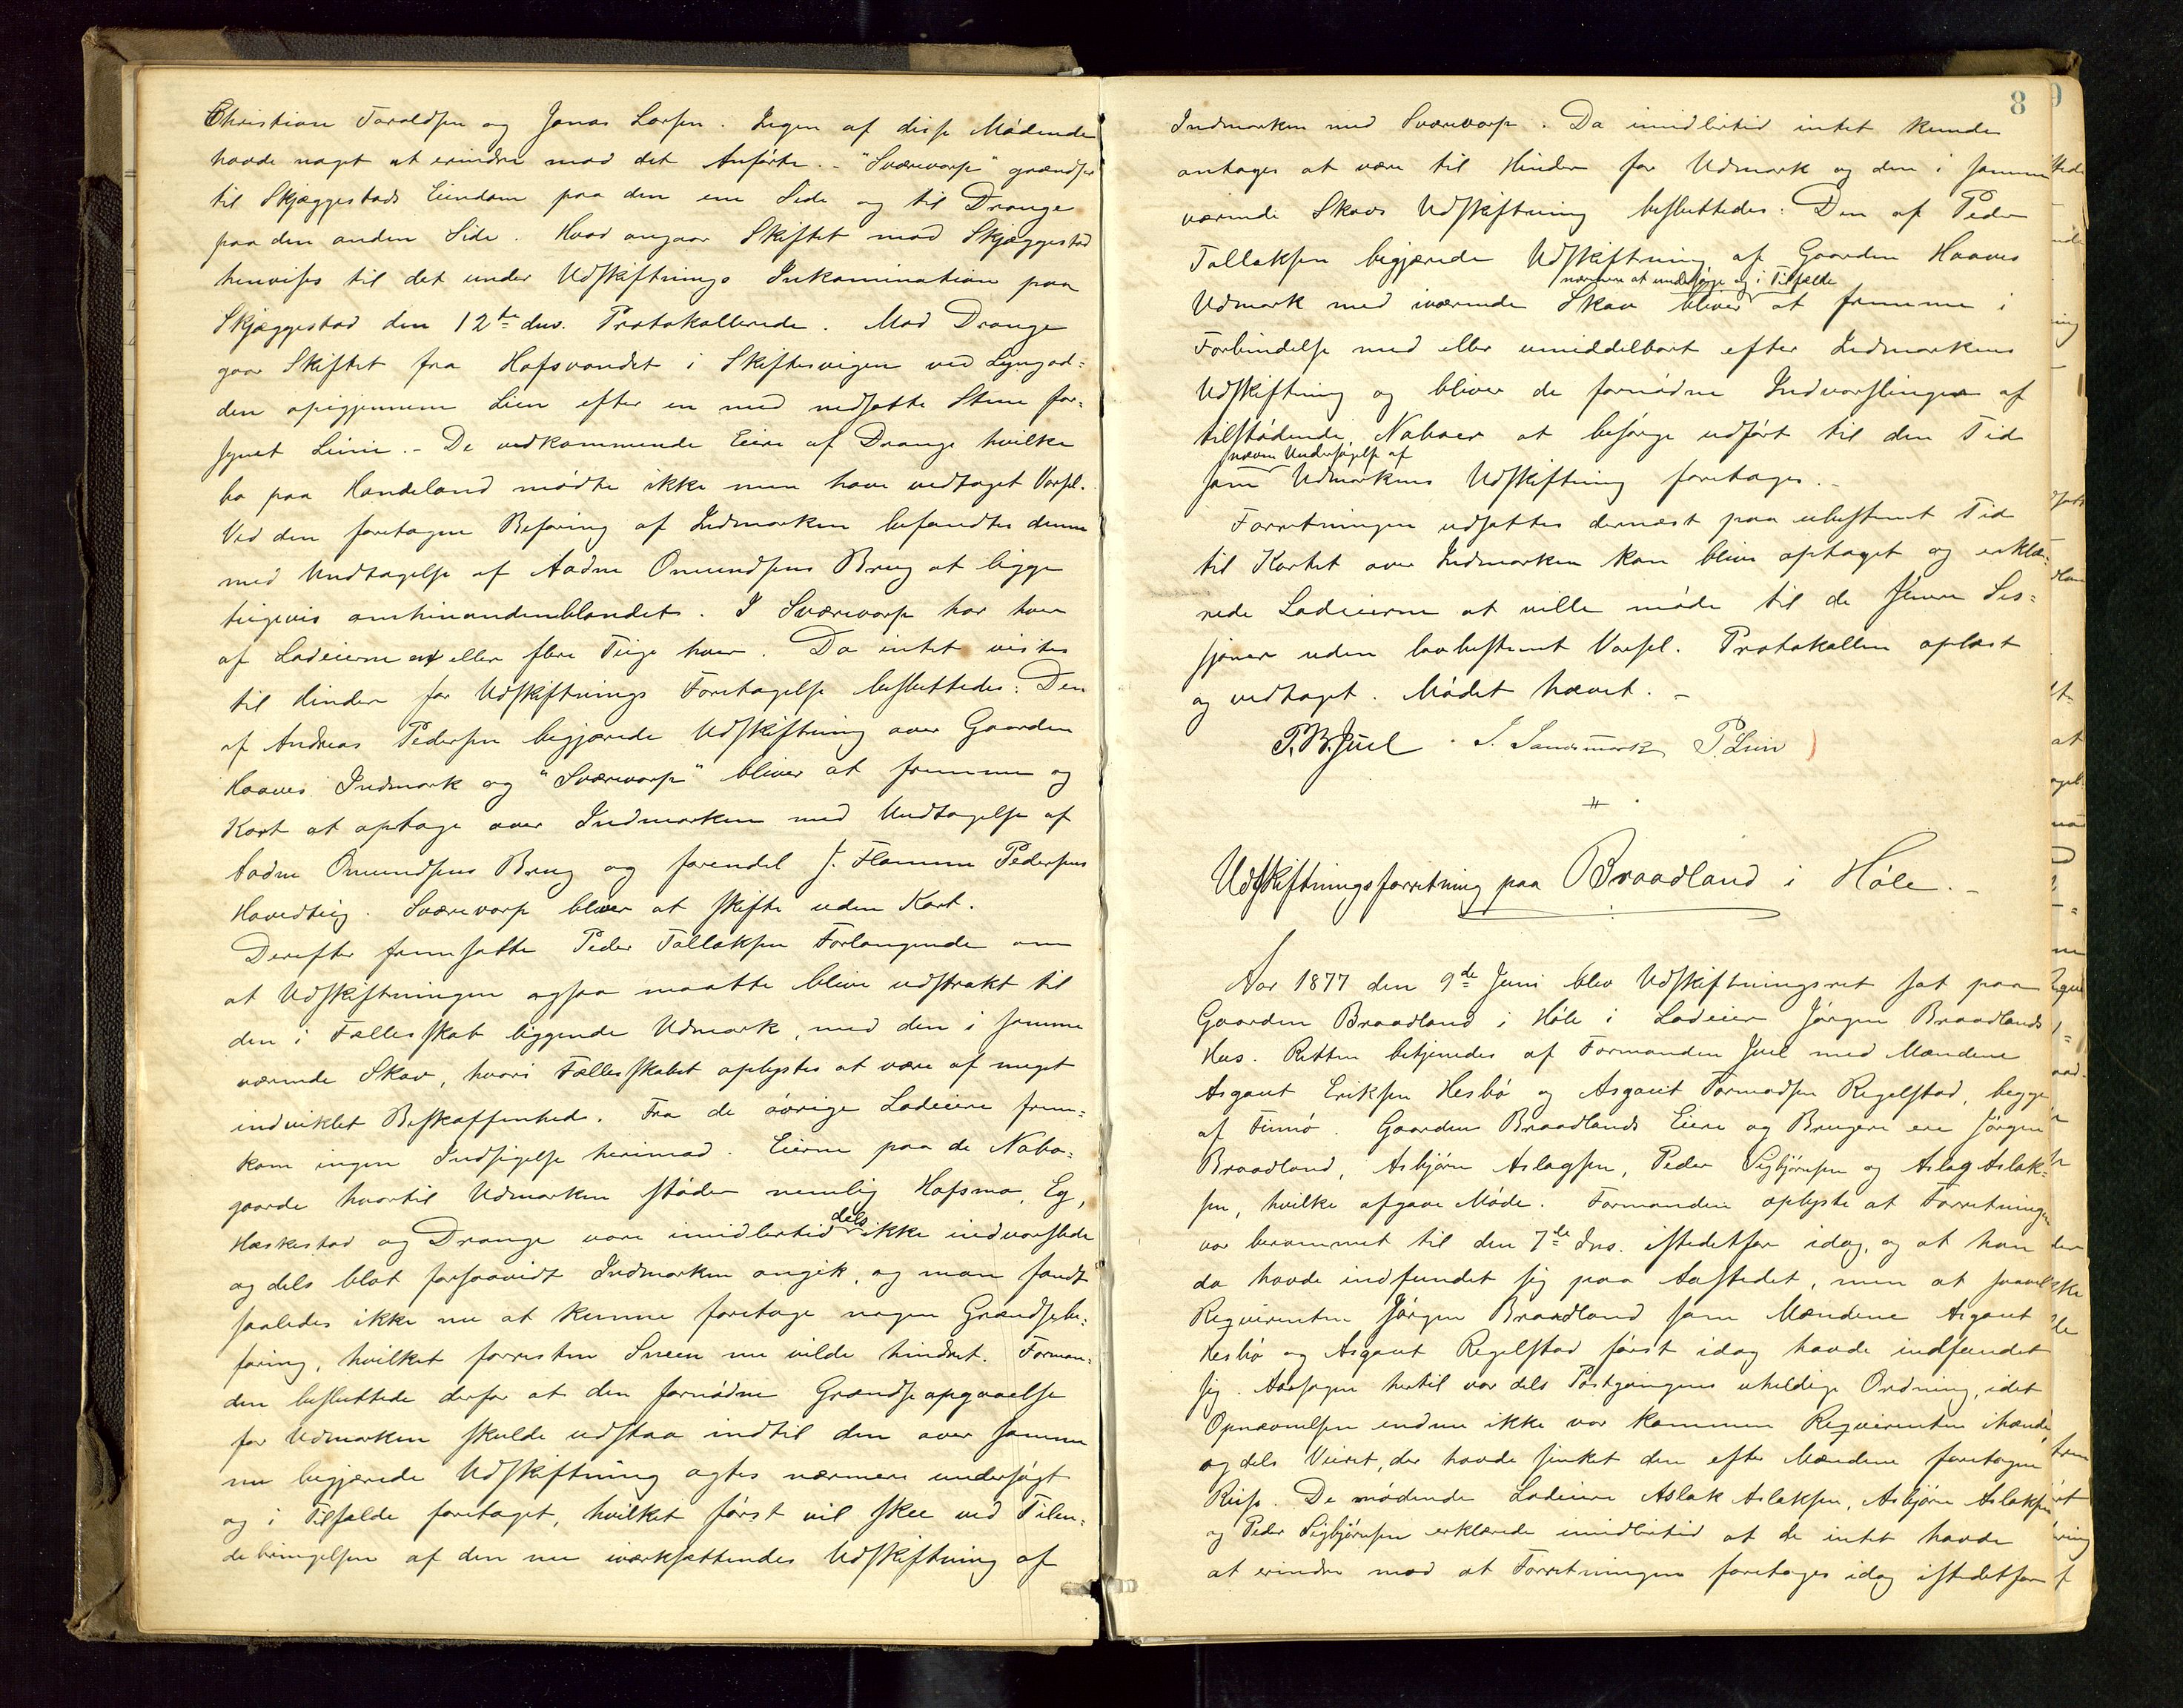 Christian Taraldsen og Jonas Larsen. Ingen af disse Mødende
havde noget at erindre mod det Anførte. - "Sværevarp" grændser
til Skjæggestads Eiendom paa den ene Side og til Drange
paa den anden Side. Hvad angaar Skiftet mod Skjæggestad
henvises til det under Udskiftnings Inkamination paa
Skjæggestad den 12te dns. Protokollerede. Mod Drange
gaar Skiftet fra Hafsvandet i Skiftesvigen ved Lyngod=
den opigjennem Lien efter en med nedsatte Stene for=
synet Linie. - De vedkommende Eiere af Drange hvilke
bo paa Handeland mødte ikke men have vedtaget Varsel.
Ved den foretagne Befaring af Indmarken befandtes denne
med Undtagelse af Aadne Omundsens Brug at ligge
teigevis omhinandenblandet. I Sværevarp har hver
af Lodeierne en eller flere Teige hver. Da intet vistes
til Hinder for Udskiftnings Foretagelse besluttedes: Den
af Andreas Pedersen begjærede Udskiftning over Gaarden
Haaves Indmark og "Sværevarp" bliver at fremme og
Kart at optage over Indmarken med Undtagelse af
Aadne Omundsens Brug og forendel J. Flamme Pedersens
Hovedteig. Sværevarp bliver at skifte uden Kart.
Derefter fremsatte Peder Tollaksen Forlangende om
at Udskiftningen ogsaa maatte blive udstrakt til
den i Fællesskab liggende Udmark, med den i samme
værende Skov, hvori Fællesskabet oplystes at være af meget
indviklet Beskaffenhed. Fra de øvrige Lodeiere frem=
kom ingen Indsigelse herimod. Eierne paa de Nabo=
gaarde hvortil Udmarken støder nemlig Hafsmo, Eg,
Haskestad og Drange vare imidlertid dels ikke indvarslede
og dels blot forsaavidt Indmarken angik, og man fandt
saaledes ikke nu at kunne foretage nogen Grændsebe=
faring, hvilket forresten Sneen nu vilde hindret. Forman=
den besluttede derfor at den fornødne Grændseopgaaelse
for Udmarken skulde udstaa indtil den over samme
nu begjærede Udskiftning agtes nærmere undersøgt
og i Tilfælde foretaget, hvilket først vil skee ved Tilen=
debringelsen af den nu iværksættendes Udskiftning af
8
Indmarken med Sværevarp. Da imidlertid intet kunde
antages at være til Hinder for Udmark og den i samme
værende Skovs Udskiftning besluttedes: Den af Peder
Tollaksen begjærede Udskiftning af Gaarden Haaves
nærmere at undersøge og i Tilfælde
Udmark med iværende Skov bliver at fremme i
Forbindelse med eller umiddelbart efter Indmarkens
Udskiftning og bliver de fornødne Indvarslinger af
tilstødende Naboer at besørge udført til den Tid
nævnte Undersøgelse af
som Udmarkens Udskiftning foretages. -
Forretningen udsattes dernæst paa ubestemt Tid
til Kartet over Indmarken kan blive optaget og erklæ=
rede Lodeierne at ville møde til de senere Ses=
sjoner uden lovbestemt Varsel. Protokollen oplæst
og vedtaget. Mødet hævet. -
P. B. Juel . S. Sandsmark P. Lun
#
Udskiftningsforretning paa Braadland i Høle. -
Aar 1877 den 9de Juni blev Udskiftningsret sat paa
Gaarden Braadland i Høle i Lodeier Jørgen Braadlands
Hus. Retten betjenedes af Formanden Juel med Mændene
Asgaut Eriksen Hesbø og Asgaut Tormodsen Regelstad, begge
af Finnø. Gaarden Braadlands Eiere og Brugere ere Jørgen
Braadland, Asbjørn Aslagsen, Peder Sigbjørnsen og Aslag Aslak=
sen, hvilke afgave Møde. Formanden oplyste at Forretningen
var berammet til den 7de dns. istedetfor idag, og at han
da havde indfundet sig paa Aastedet, men at saavel
Reqvirenten Jørgen Braadland som Mændene Asgaut
Hesbø og Asgaut Regelstad først idag havde indfundet
sig. Aarsagen hertil var dels Postgangens uheldige Ordning, idet
Opnævnelsen endnu ikke var kommen Reqvirenten ihænde
og dels Veiret, der havde sinket den efter Mændene foretagne
Reise. De mødende Lodeiere Aslak Aslaksen, Asbjørn Aslaksen
og Peder Sigbjørnsen erklærede imidlertid at de intet havde
at erindre mod at Forretningen foretages idag istedetfor